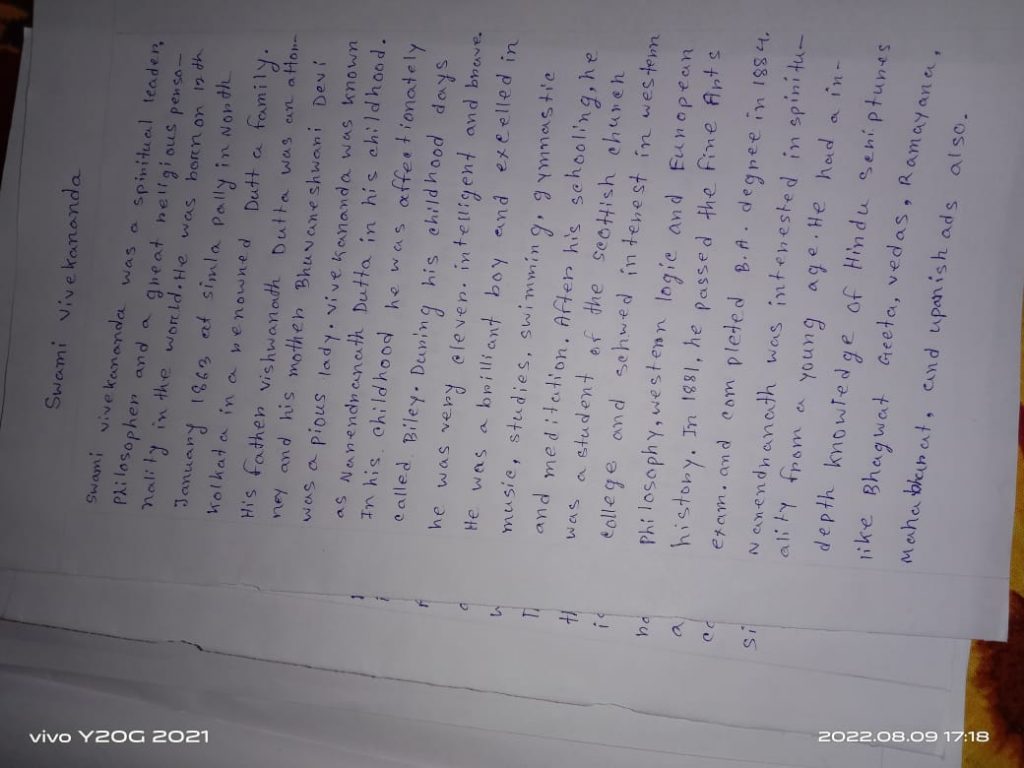 Swami vivekananda
Swami vivekananda was a spiritual leader,
Philosopher and a great religious perso-
nality in the world. He was born on 12th
January 1863 at simla Pally in North
Kolkata in a renowned Dutta family.
His father vishwanath Dutta was an attor-
ney and his mother Bhuvaneshwari Devi
was a Pious lady. vivekananda was known
as Narendranath Dutta in his childhood.
In his childhood he was affectionately
called Biley. During his childhood days
he was very clever. intelligent and brave.
He was a brilliant boy and excelled in
music, studies, swimming, gymnastic
and meditation. After his schooling, he
was a student of the scottish church
college and schwed interest in western
Philosophy, western logic and European
history. In 1881, he passed the Fine Arts
exam. and completed B.A. degree in 1884.
Narendranath was interested in spiritu-
ality from a young age. He had a in-
depth knowledge of Hindu scriptures
like Bhagwat Geeta, vedas, Ramayana,
Mahabharat, and upanishads also.
vivo Y20G 2021
2022.08.09 17:18